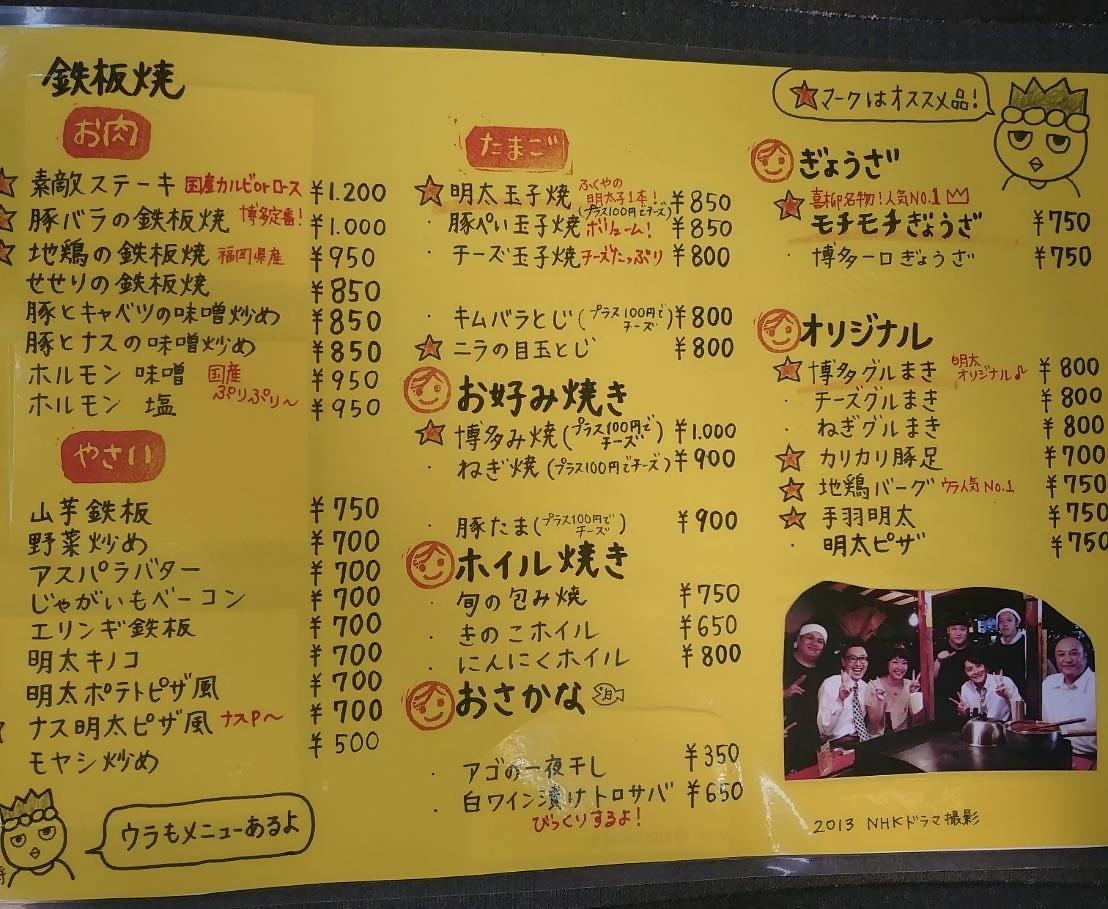 鉄板焼
お肉
素敵ステーキ 国産カルビorロース ¥1.200
豚バラの鉄板焼 博多定番! ¥1.000
地鶏の鉄板焼 福岡県産 ¥950
せせりの鉄板焼 ¥850
豚とキャベツの味噌炒め ¥850
豚とナスの味噌炒め ¥850
ホルモン 味噌 国産 ¥950
ぷりぷり〜
ホルモン 塩 ¥950
やさい
山芋鉄板 ¥750
野菜炒め ¥700
アスパラバター ¥700
じゃがいもベーコン ¥700
エリンギ鉄板 ¥700
明太キノコ ¥700
明太ポテトピザ風 ¥700
ナス明太ピザ風 ナスP〜 ¥700
モヤシ炒め ¥500
ウラもメニューあるよ
たまご
★明太玉子焼 ふくやの明太子1本! (プラス100円でチーズ) ¥850
・豚ぺい玉子焼 ボリューム! ¥850
・チーズ玉子焼 チーズたっぷり ¥800
・キムバラとじ(プラス100円でチーズ) ¥800
★ニラの目玉とじ ¥800
お好み焼き
★博多み焼(プラス100円でチーズ) ¥1.000
・ねぎ焼(プラス100円でチーズ) ¥900
・豚たま(プラス100円でチーズ) ¥900
ホイル焼き
・旬の包み焼 ¥750
・きのこホイル ¥650
・にんにくホイル ¥800
おさかな
・アゴの一夜干し ¥350
・白ワイン漬けトロサバ ¥650
びっくりするよ!
★マークはオススメ品!
ぎょうざ
喜柳名物!人気No.1
★モチモチぎょうざ ¥750
・博多一口ぎょうざ ¥750
オリジナル
★博多グルまき 明太オリジナル♪ ¥800
・チーズグルまき ¥800
・ねぎグルまき ¥800
★カリカリ豚足 ¥700
★地鶏バーグ ウラ人気No.1 ¥750
★手羽明太 ¥750
・明太ピザ ¥750
2013 NHKドラマ撮影